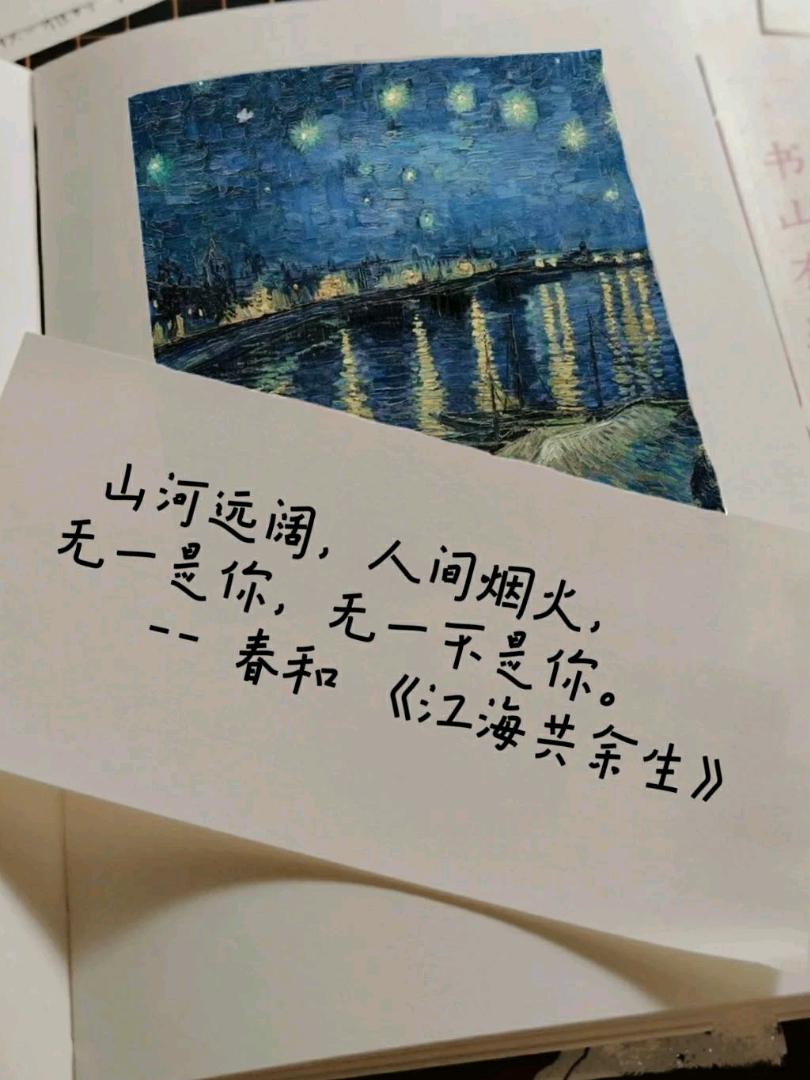 山河远阔,人间烟火,
无一是你,无一不是你。
-- 春和 《江海共余生》
书
山